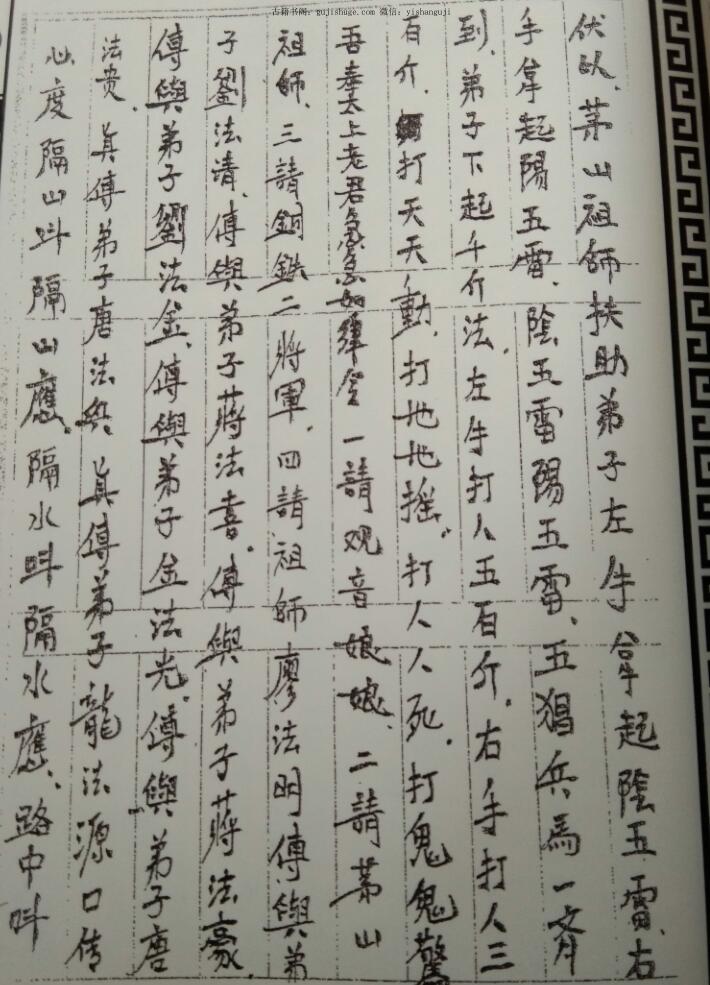 古籍书阁：gujishuge.com 微信：yishanguji
伏以、茅山祖師扶助弟子左手拿起陰五雷、右
手拿起陽五雷、陰五雷陽五雷、五猖兵馬一齊
到、弟子下起千介法、左手打人五百介、右手打人三
百介、打天天動、打地地摇、打人人死、打鬼鬼驚
吾奉太上老君急急如律令 一請观音娘娘、二請茅山
祖師、三請銅鉄二將軍、四請祖師廖法明傳與弟
子劉法清、傳與弟子蔣法喜、傳與弟子蔣法豪、
傳與弟子劉法金、傳與弟子金法光、傳與弟子唐
法贵、真傳弟子唐法兵、真傳弟子龍法源口传
心度隔山叫隔山應、隔水叫隔水應、路中叫